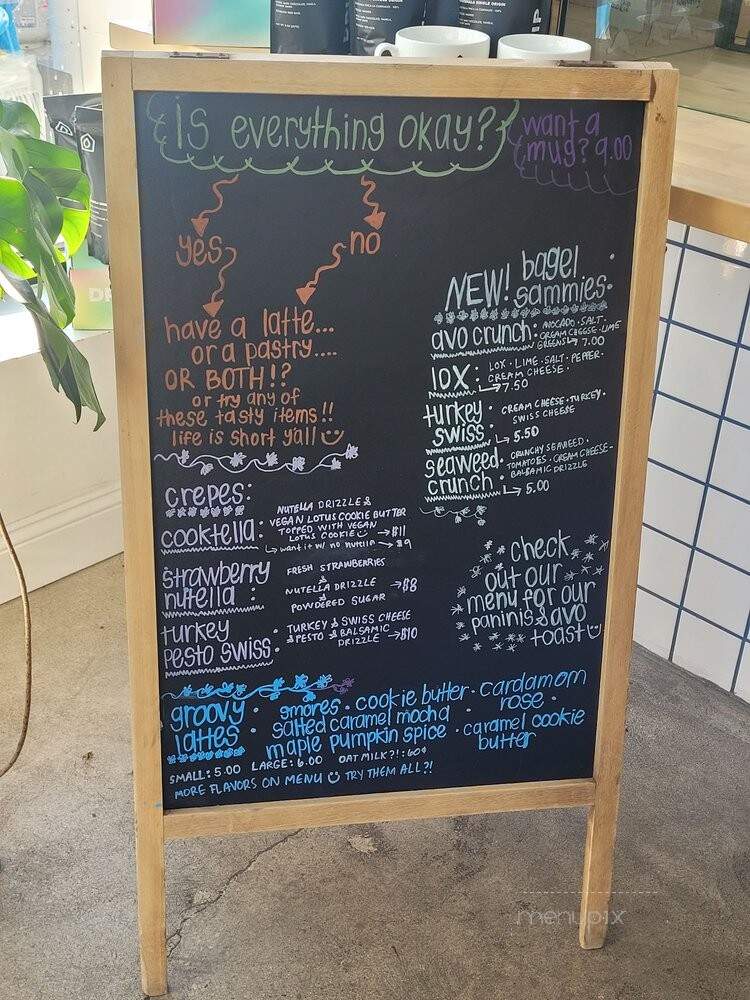 is everything okay?
want a
mug? 9.00
yes
no
have a latte...
or a pastry....
OR BOTH!?
or try any of
these tasty items!!
life is short y'all
NEW! bagel
sammies.
avo crunch. AVOCADO · SALT ·
CREAM CHEESE · LIME
GREENS 7.00
lox: LOX · LIME · SALT · PEPPER ·
CREAM CHEESE ·
7.50
turkey CREAM CHEESE · TURKEY ·
swiss. SWISS CHEESE
5.50
seaweed CRUNCHY SEAWEED ·
crunch: TOMATOES · CREAM CHEESE -
BALSAMIC DRIZZLE
5.00
crepes:
cooktella: NUTELLA DRIZZLE &
VEGAN LOTUS COOKIE BUTTER
TOPPED WITH VEGAN
LOTUS COOKIE $11
want it w/ no nutella $9
strawberry FRESH STRAWBERRIES
&
nutella: NUTELLA DRIZZLE $8
&
POWDERED SUGAR
turkey TURKEY & SWISS CHEESE
pesto swiss. & PESTO & BALSAMIC
DRIZZLE $10
check
out our
menu for our
paninis & avo
toast
groovy · smores · cookie butter · cardamom
rose ·
lattes · salted caramel mocha
maple pumpkin spice · caramel cookie
butter
SMALL: 5.00 LARGE: 6.00 OAT MILK?!: 60¢
MORE FLAVORS ON MENU TRY THEM ALL?!
menupix